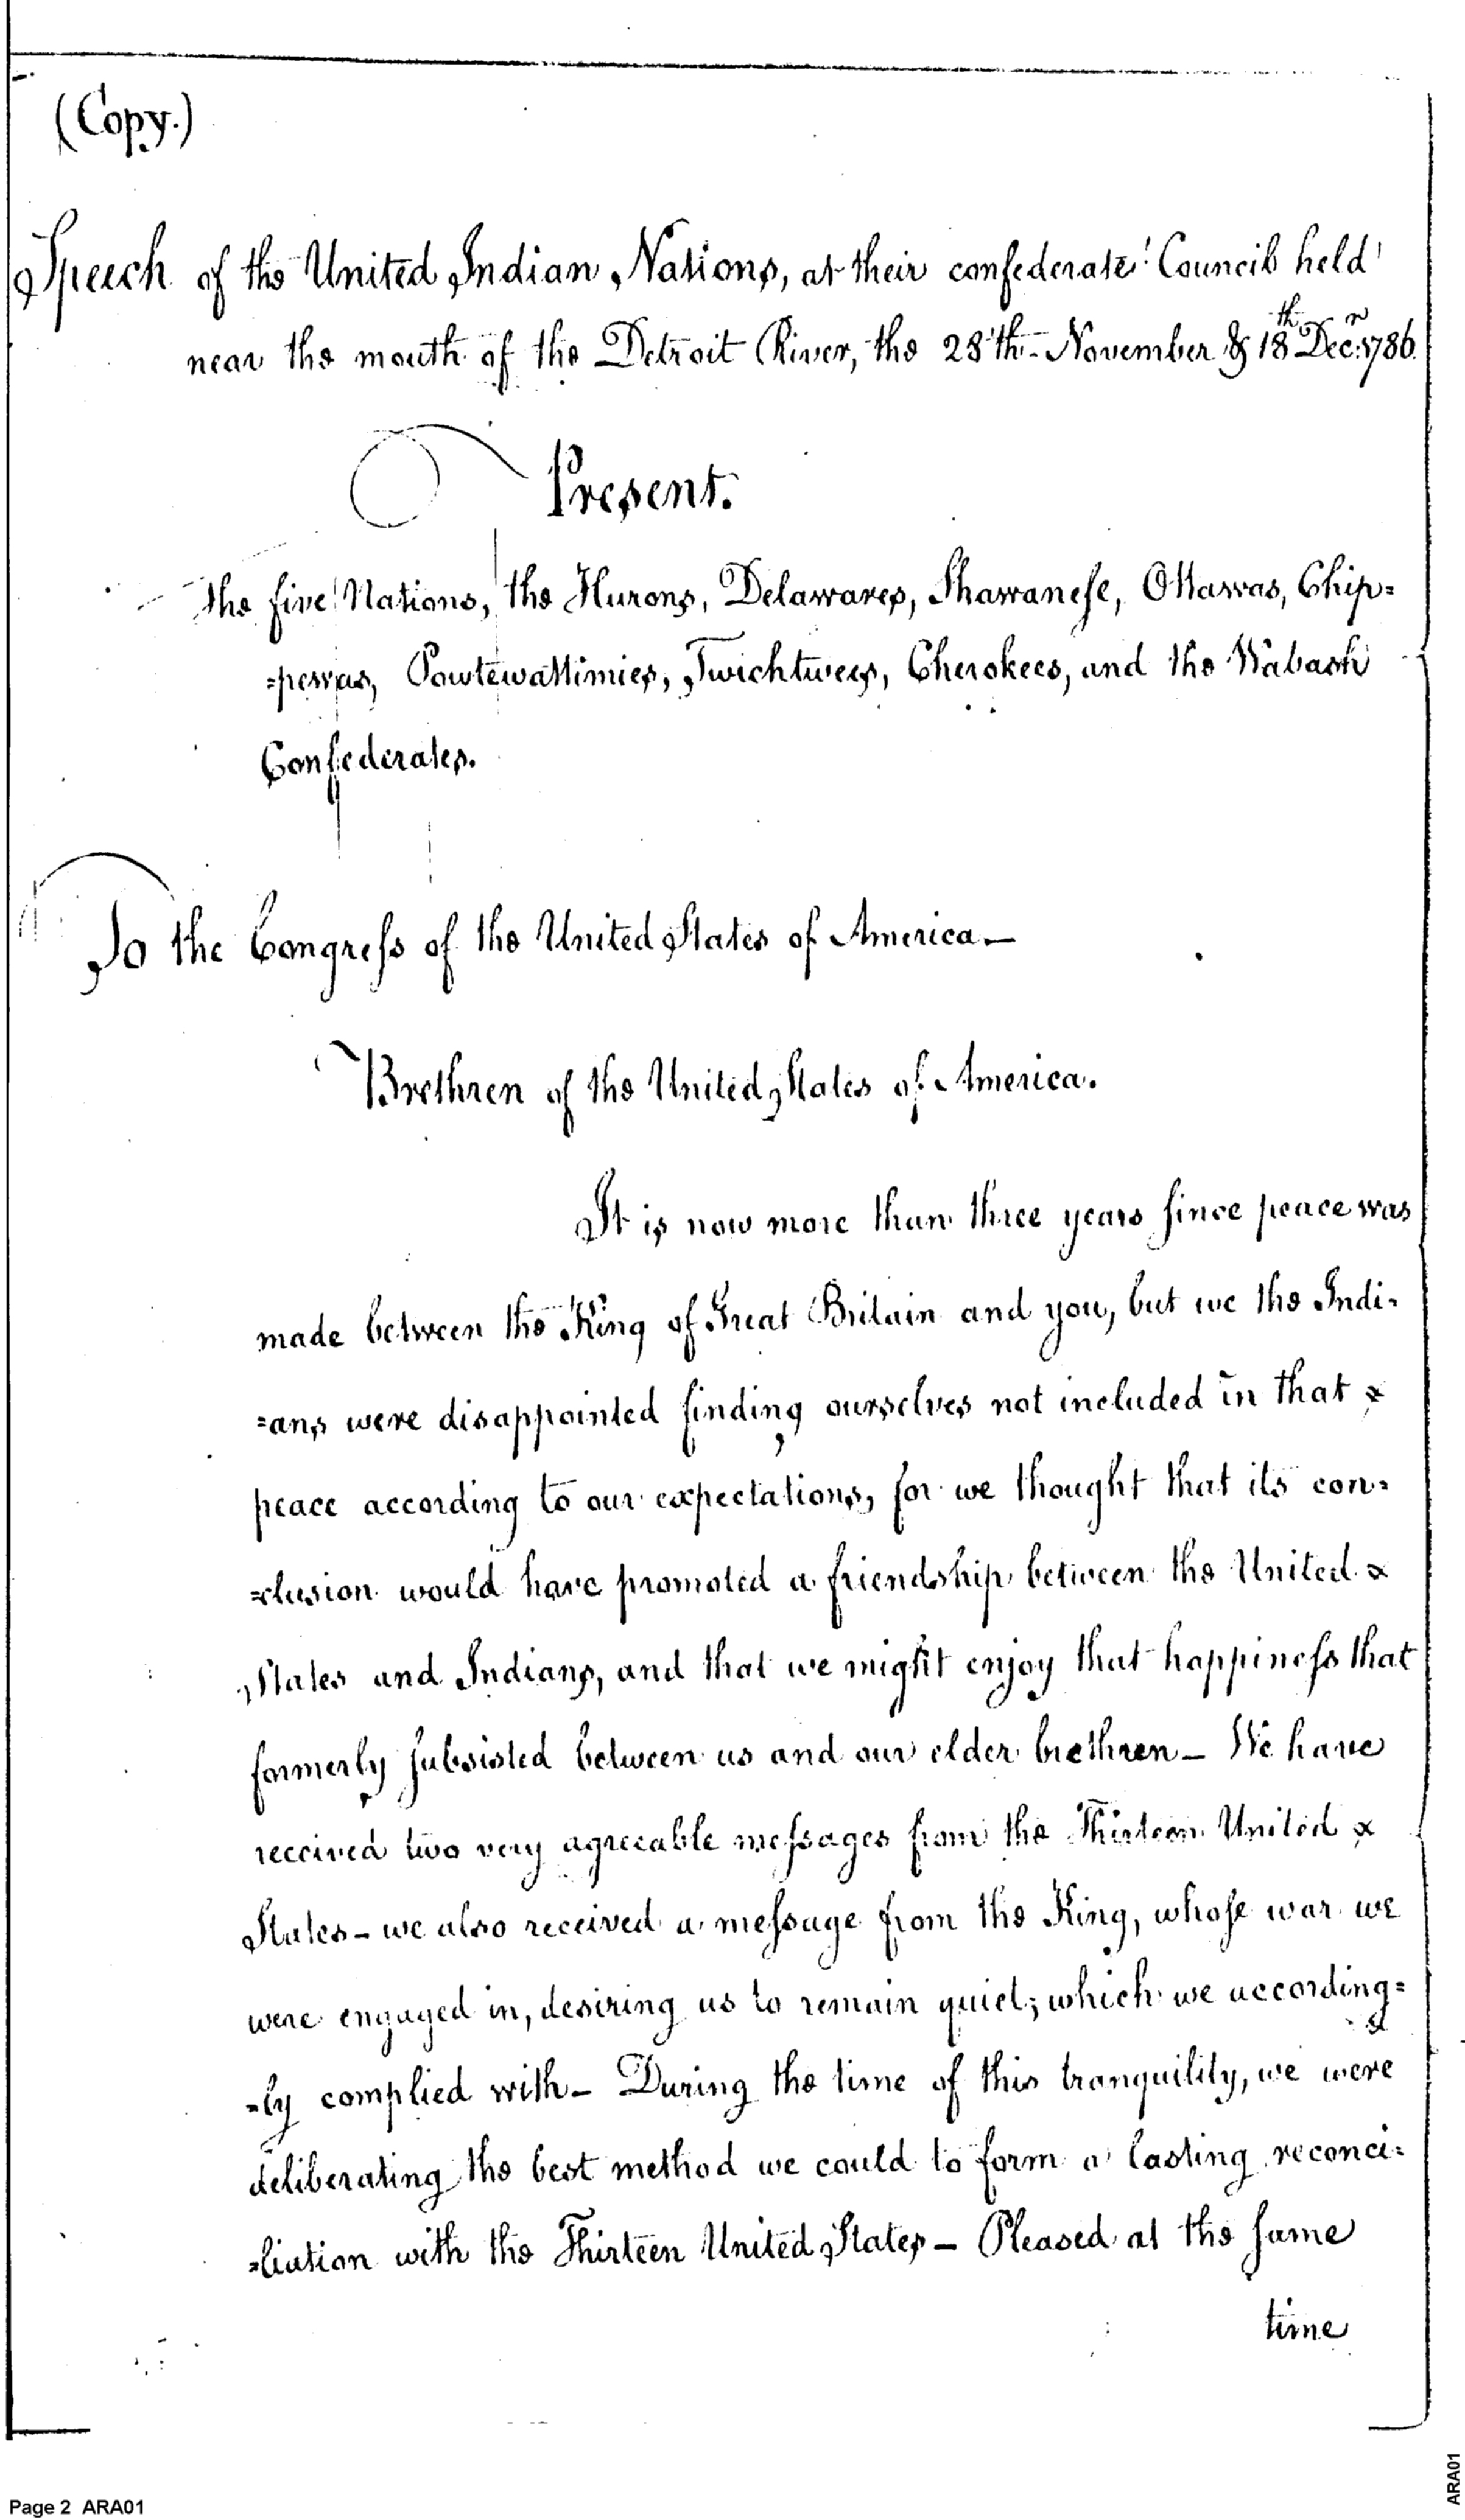 (Copy.)
Speech of the United Indian Nations, at their confederate Council held
near the mouth of the Detroit River, the 28th November & 18th Decr. 1786.
Present.
The five Nations, the Hurons, Delawares, Shawaneſe, Ottawas, Chip=
=pewas, Powtewattimies, Twichtwees, Cherokees, and the Wabash
Confederates.
To the Congreſs of the United States of America—
Brethren of the United States of America.
It is now more than three years ſince peace was
made between the King of Great Britain and you, but we the Indi=
=ans were disappointed finding ourselves not included in that
peace according to our expectations, for we thought that its con=
=clusion would have promoted a friendship between the United
States and Indians, and that we might enjoy that happineſs that
formerly ſubsisted between us and our elder brethren — We have
received two very agreeable meſsages from the Thirteen United
States — we also received a meſsage from the King, whoſe war we
were engaged in, desiring us to remain quiet; which we according=
=ly complied with — During the time of this tranquility, we were
deliberating the best method we could to form a lasting reconci=
=liation with the Thirteen United States — Pleased at the ſame
time
Page 2 ARA01
ARA01